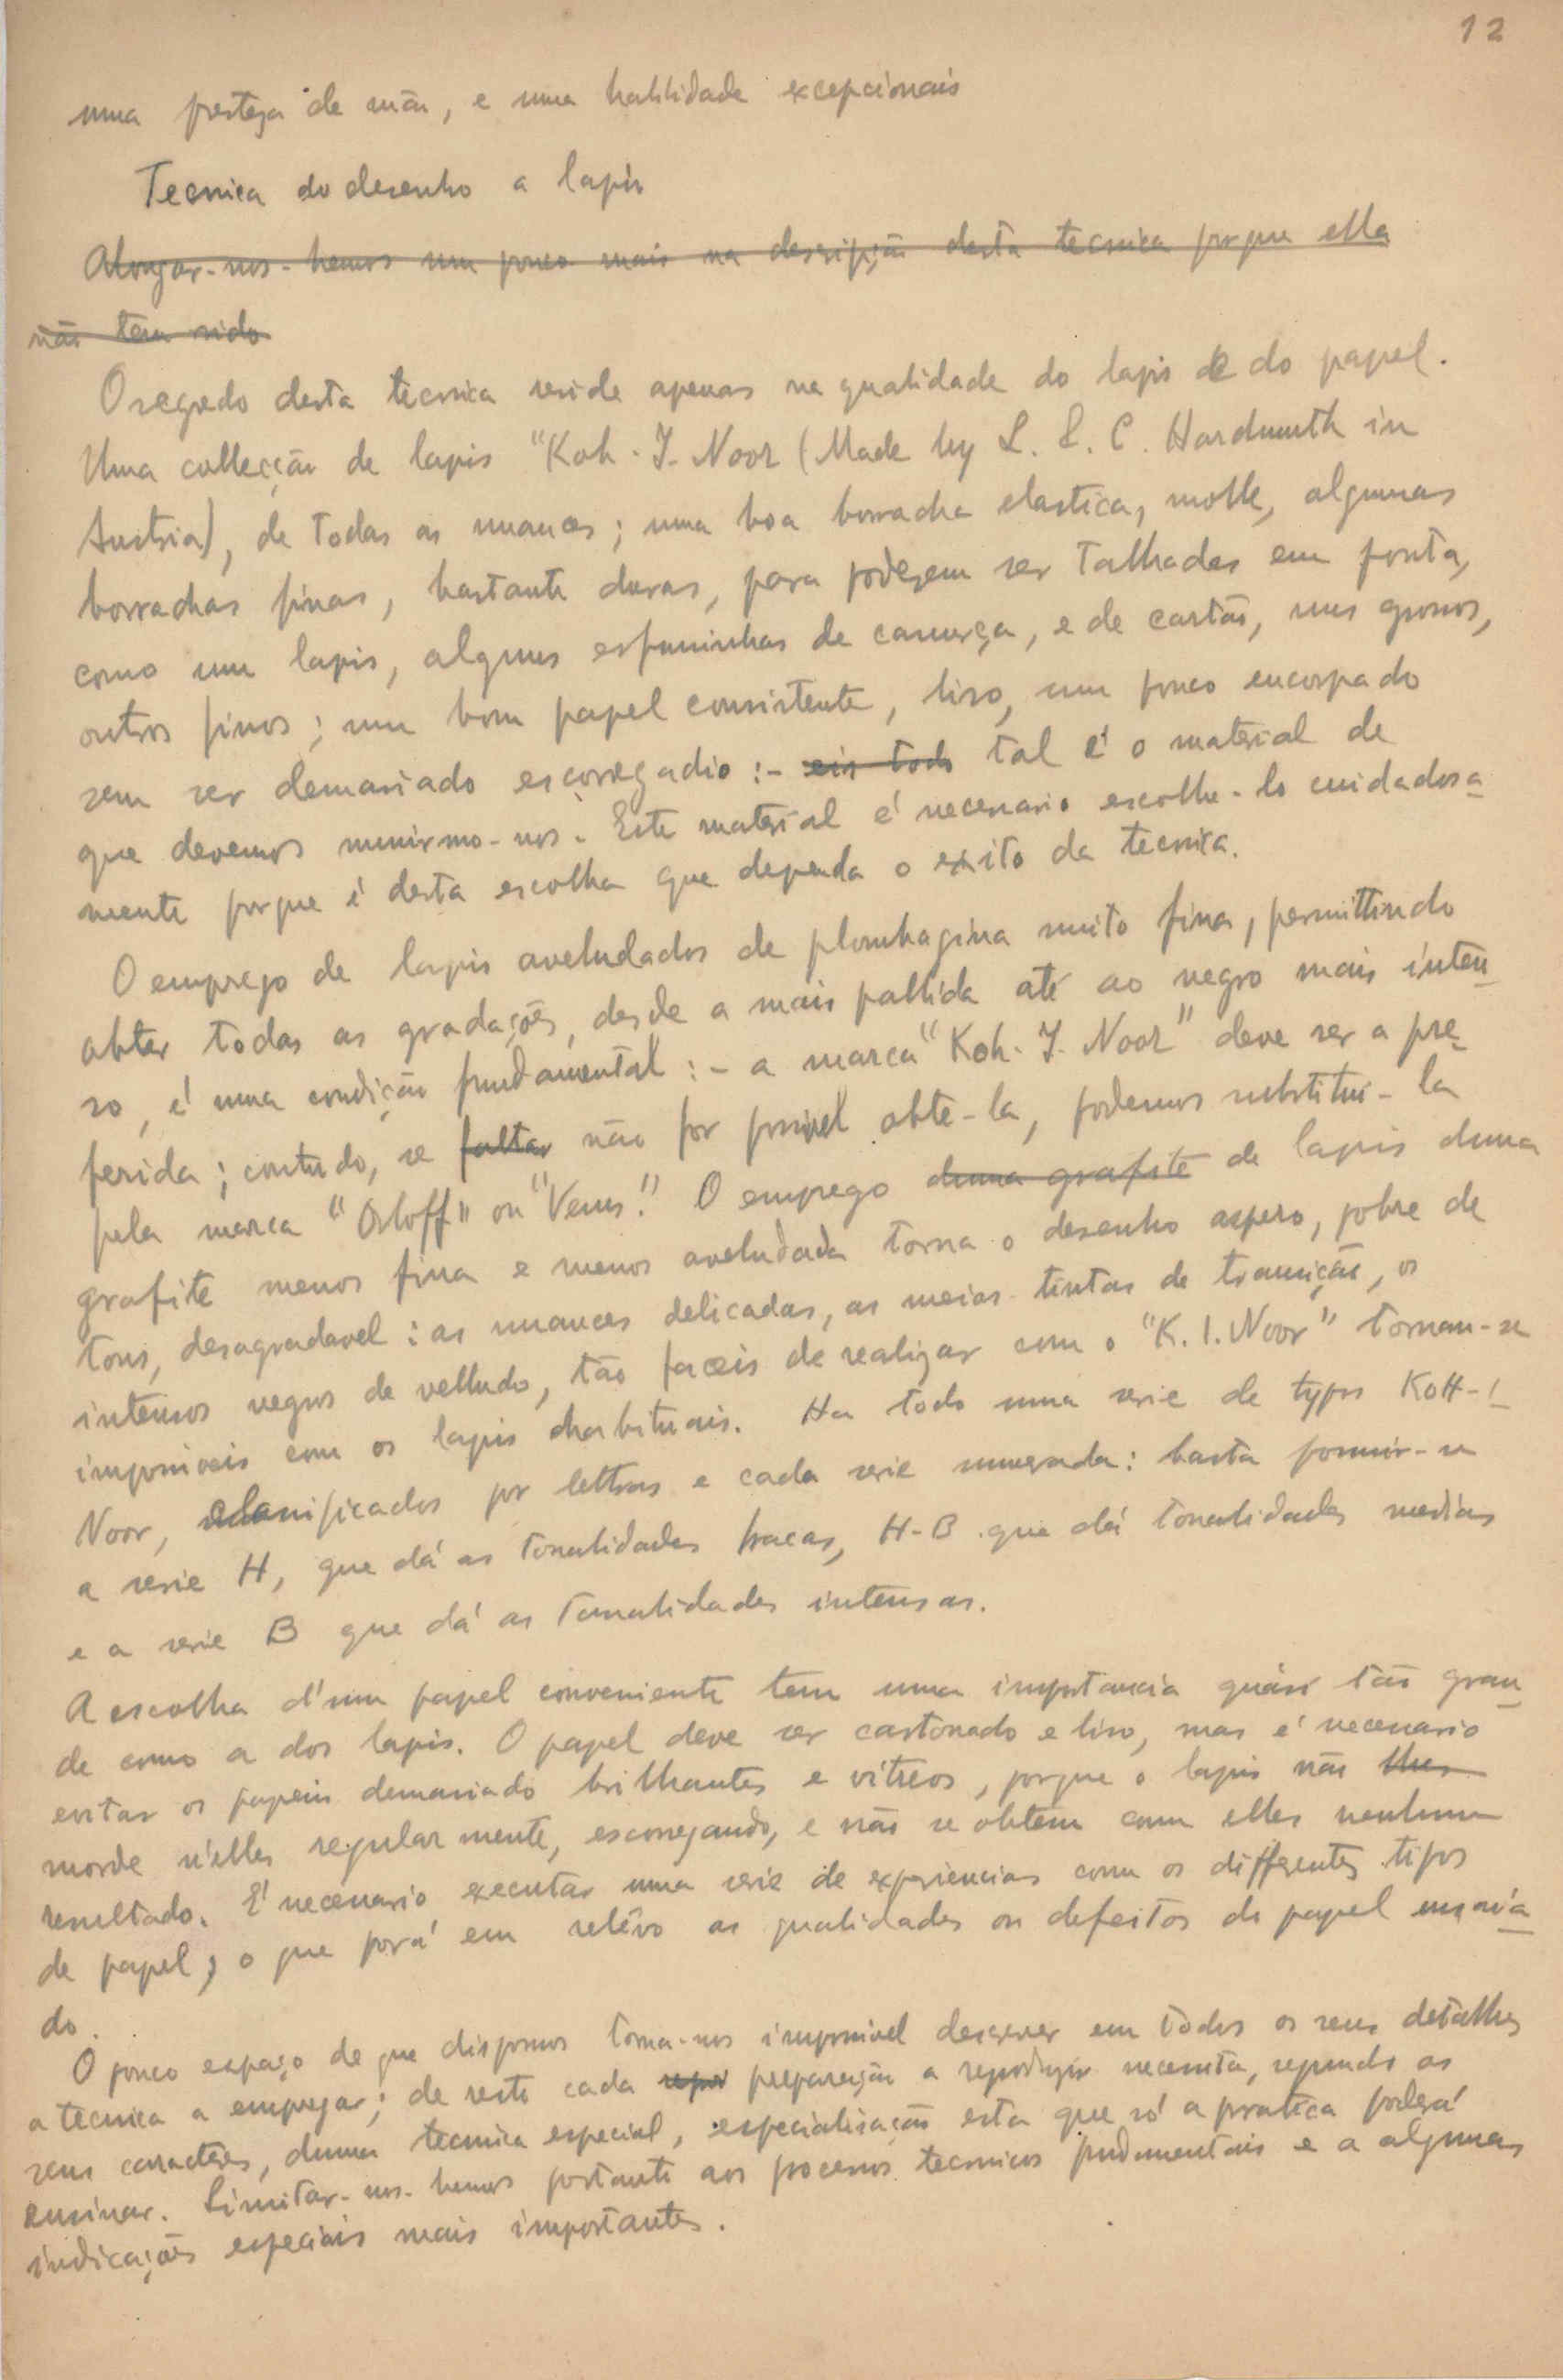 12
uma presteza de mão, e uma habilidade excepcionais
Tecnica do desenho a lapis
Alongar-nos-hemos um pouco mais na descripção desta tecnica porque ella
não tem sido
O segredo desta tecnica reside apenas na qualidade do lapis e do papel.
Uma collecção de lapis "Koh-I-Noor (Made by L. &. C. Hardmuth in
Austria), de todas as nuances; uma boa borracha elastica, molle, algumas
borrachas finas, bastante duras, para poderem ser talhadas em ponta,
como um lapis, alguns esfuminhos de camurça, e de cartão, uns grossos,
outros finos; um bom papel consistente, liso, um pouco encorpado
sem ser demasiado escorregadio :- eis todo tal é o material de
que devemos munirmo-nos. Este material é necessario escolhe-lo cuidadosa-
mente porque é desta escolha que depende o exito da tecnica.
O emprego de lapis aveludados de plombagina muito fina, permittindo
obter todas as gradações, desde a mais pallida até ao negro mais inten-
so, é uma condição fundamental :- a marca "Koh-I-Noor" deve ser a pre-
ferida; contudo, se faltar não for possivel obte-la, podemos substitui-la
pela marca "Orloff" ou "Venus". O emprego duma grafite de lapis duma
grafite menos fina e menos aveludada torna o desenho aspero, pobre de
tons, desagradavel: as nuances delicadas, as meias-tintas de transição, os
intensos negros de velludo, tão faceis de realizar com o "K.I.Noor" tornam-se
impossiveis com os lapis habituais. Ha toda uma serie de typos KOH-I
Noor, classificados por lettras e cada serie numerada: basta possuir-se
a serie H, que dá as tonalidades fracas, H-B que dá tonalidades medias
e a serie B que dá as tonalidades intensas.
A escolha d'um papel conveniente tem uma importancia quási tão gran-
de como a dos lapis. O papel deve ser cartonado e liso, mas é necessario
evitar os papeis demasiado brilhantes e vitreos, porque o lapis não lhes
morde n'elles regularmente, escorregando, e não se obtem com elles nenhum
resultado. É necessario executar uma serie de experiencias com os differentes tipos
de papel, o que porá em relêvo as qualidades ou defeitos do papel ensaia-
do.
O pouco espaço de que dispomos torna-nos impossivel descrever em todos os seus detalhes
a tecnica a empregar; de resto cada repro preparação a reproduzir necessita, segundo os
seus caracteres, duma tecnica especial, especialisação esta que só a pratica poderá
ensinar. Limitar-nos-hemos portanto aos processos tecnicos fundamentais e a algumas
indicações especiais mais importantes.